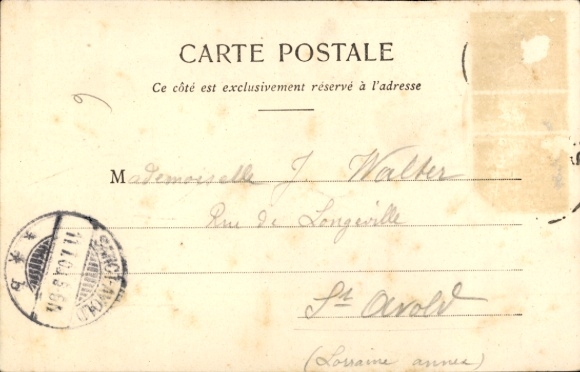 CARTE POSTALE
Ce côté est exclusivement réservé à l'adresse
Mademoiselle J. Walter
Rue de Longeville
St Avold
(Lorraine annex)